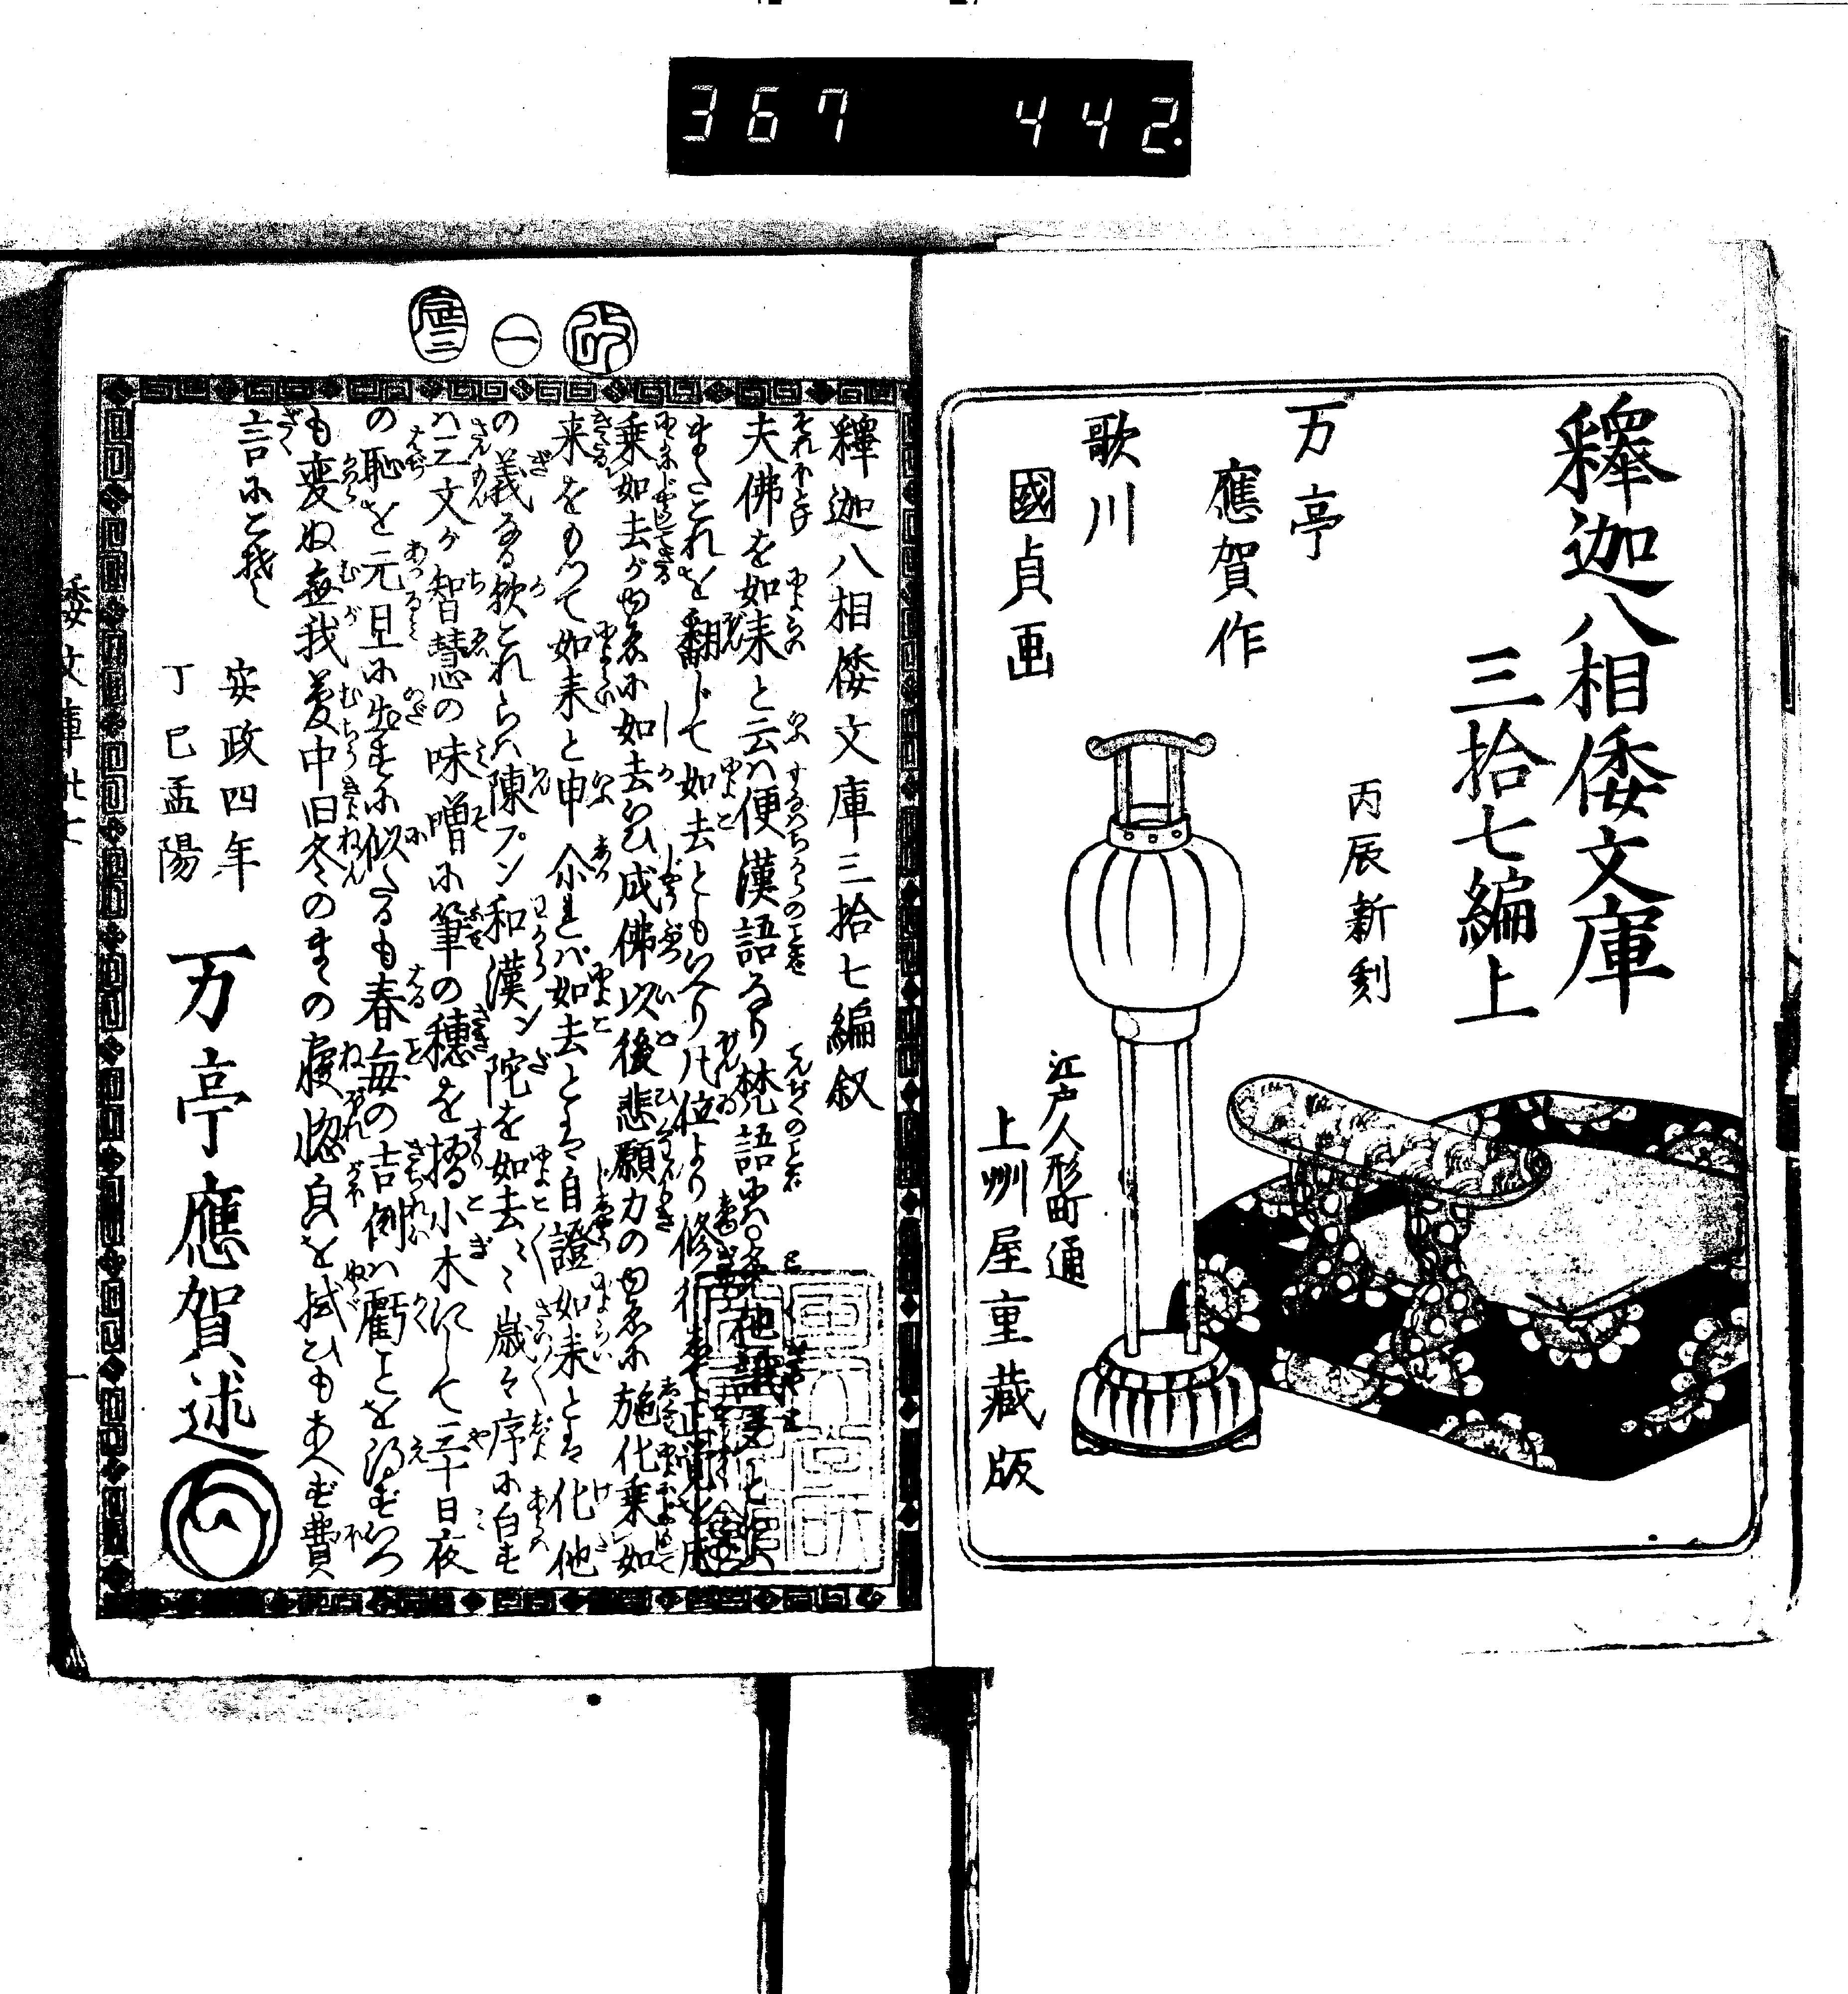 367 442.
釋迦八相倭文庫
三拾七編上
丙辰新刻
万亭
應賀作
歌川
國貞画
江戸人形町通
上州屋重藏版
改
一
釋迦八相倭文庫三拾七編叙
夫佛を如来と云ハ便漢語なり梵語に
またこれを翻じて如去ともいへり凡位より修行
乗如去がゆゑに如去といひ成佛以後悲願力のゆゑに施化乗如
来をもつて如来と申尓れバ如去とは自證如来とは化他
の義なる歟これらハ陳プン和漢ン陀を如去〻〻歳々序に白す
ハ三文が智慧の味噌に筆の穂を摺小木にして三十日夜
の耻を元旦に出すに似たるも春毎の吉例ハ虧ことを得ずいつ
も変ぬ無我夢中旧冬のまゝの寝惚皃を拭ひもあへず費
言にこそ
安政四年
丁巳孟陽
万亭應賀述
倭文庫卅七
一